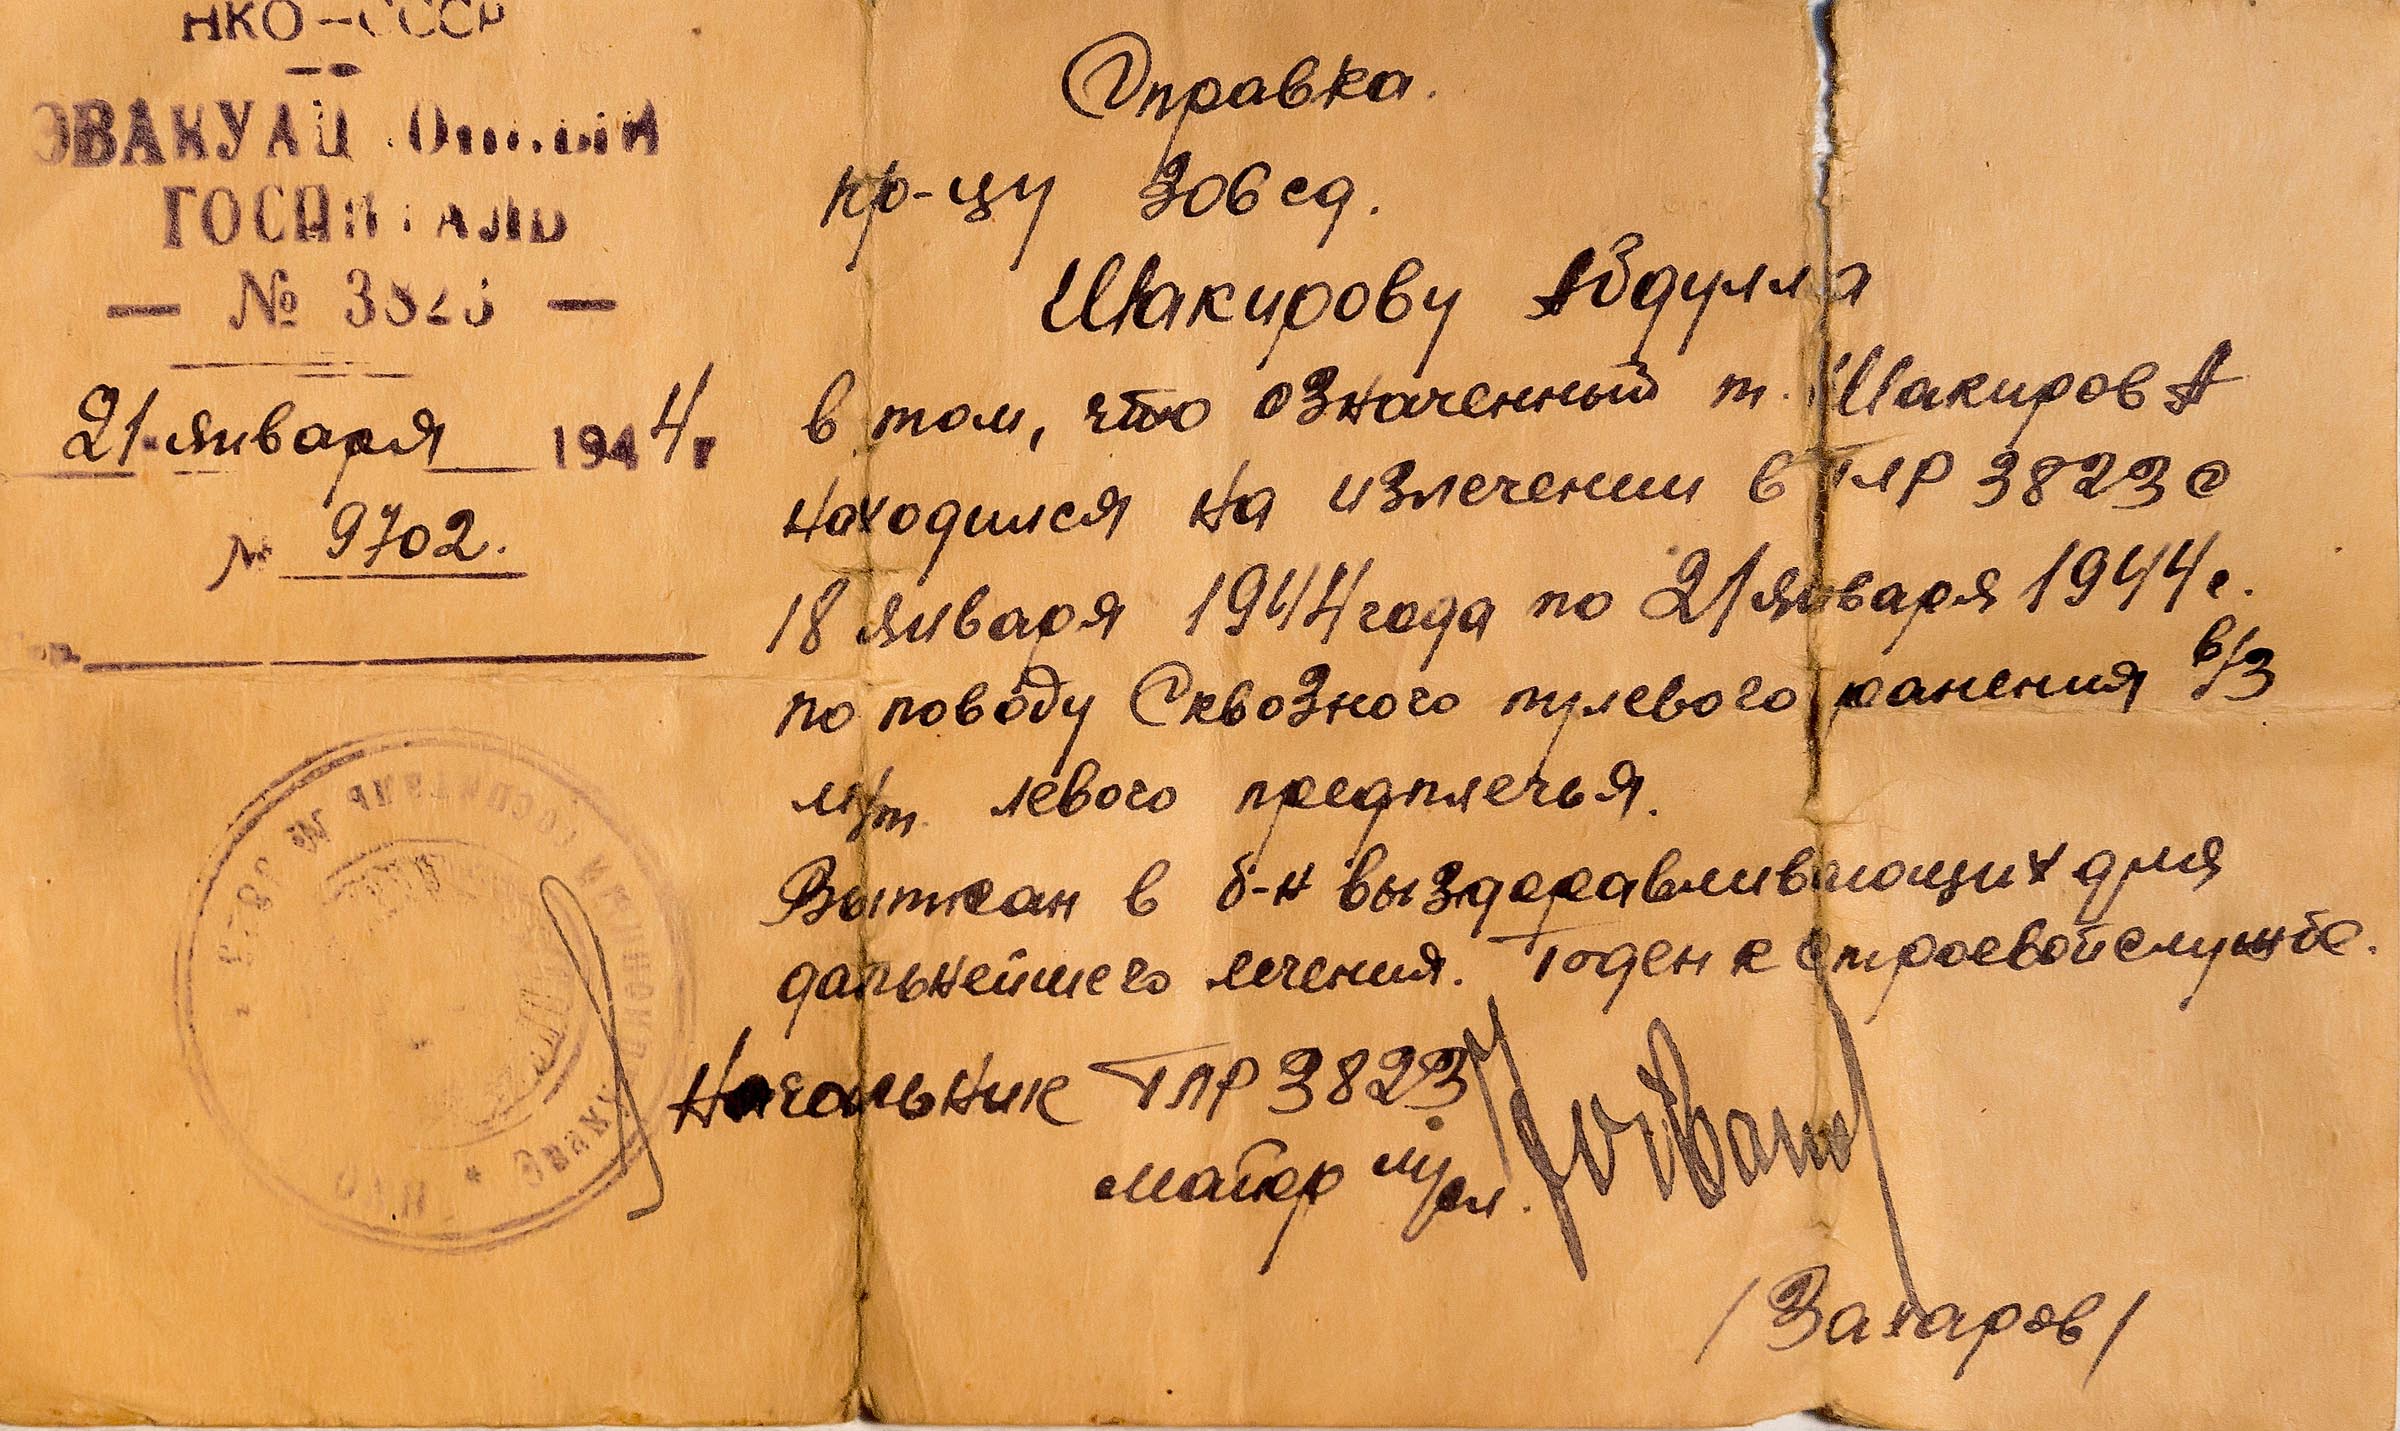 НКО-СССР
ЭВАКУАЦИОННЫЙ
ГОСПИТАЛЬ
— № 3823 —
21 января 1944 г
№ 9702.
Справка.
кр-цу 306 сд.
Шакирову Абдулла
в том, что означенный т. Шакиров А
находился на излечении в ГЛР 3823 с
18 января 1944 года по 21 января 1944 г.
по поводу Сквозного пулевого ранения в/з
м/т. левого предплечья.
Выписан в б-н выздоравливающих для
дальнейшего лечения. Годен к строевой службе.
Начальник ГЛР 3823
майор м/сл.
/Захаров/
НКО * Эвакуационный госпиталь № 3823 *